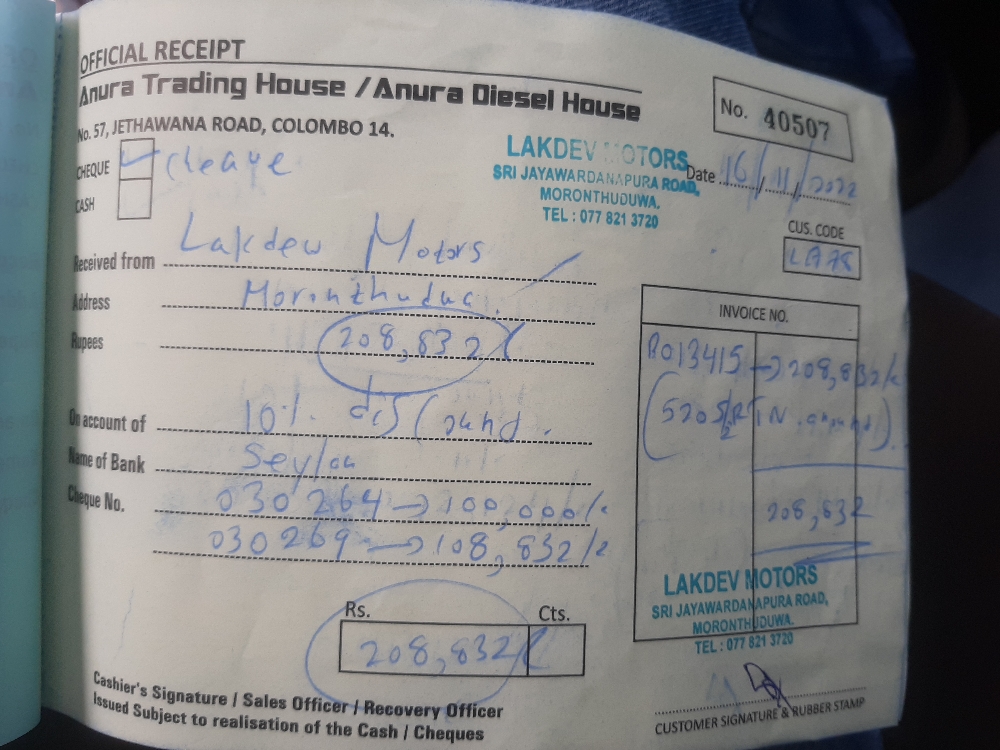 OFFICIAL RECEIPT
Anura Trading House / Anura Diesel House
No. 57, JETHAWANA ROAD, COLOMBO 14.
No. 40507
CHEQUE cheque
CASH
LAKDEV MOTORS
SRI JAYAWARDANAPURA ROAD,
MORONTHUDUWA.
TEL : 077 821 3720
Date 16/11/2022
CUS. CODE
Received from Lakdew Motors
Address Moronthudua
Rupees 208,832/
On account of 10%
Name of Bank Seylan
Cheque No. 030264 → 100,000/
030269 → 108,832/
INVOICE NO.
B013415 → 208,832/
208,832
Rs. Cts.
208,832/
LAKDEV MOTORS
SRI JAYAWARDANAPURA ROAD,
MORONTHUDUWA.
TEL : 077 821 3720
Cashier's Signature / Sales Officer / Recovery Officer
Issued Subject to realisation of the Cash / Cheques
CUSTOMER SIGNATURE & RUBBER STAMP